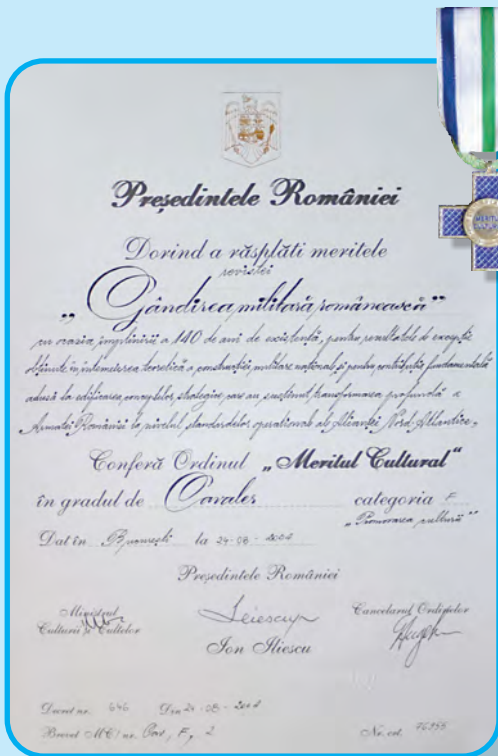 Președintele României
Dorind a răsplăti meritele
revistei
„Gândirea militară românească”
cu ocazia împlinirii a 140 de ani de existență, pentru rezultatele de excepție
obținute în întemeierea teoretică a construcției militare naționale și pentru contribuția fundamentală
adusă la edificarea conceptelor strategice care au susținut transformarea profundă a
Armatei României la nivelul standardelor operaționale ale Alianței Nord-Atlantice,
Conferă Ordinul „Meritul Cultural”
în gradul de Cavaler categoria F
„Promovarea culturii”
Dat în București la 24-08-2004
Președintele României
Ministrul
Culturii și Cultelor
Cancelarul Ordinelor
Ion Iliescu
Decret nr. 646 Din 24-08-2004
Brevet MC nr. F, 2
Nr. crt.
MERITUL